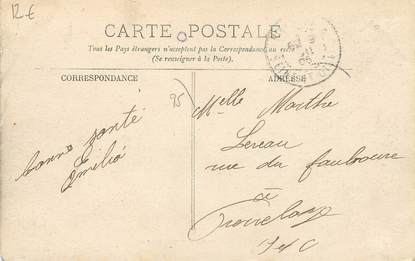 12 €
CARTE POSTALE
Tous les Pays étrangers n'acceptent pas la Correspondance au recto
(Se renseigner à la Poste).
CORRESPONDANCE
ADRESSE
95
Melle Marthe
Lereau
rue du faubourg
à
S & O
bonne santé
Emilie